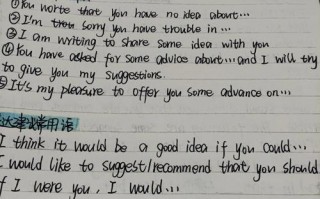 ①You worte that you have no idea about…
②I'm sorry you have trouble in …
③I am writing to share some idea with you
④You have asked for some advice about…and I will try
to give you my suggestions.
⑤It's my pleasure to offer you some advance on…
达建议常用语
I think it would be a good idea if you could…
I would like to suggest/recommend that you should
f I were you, I would…